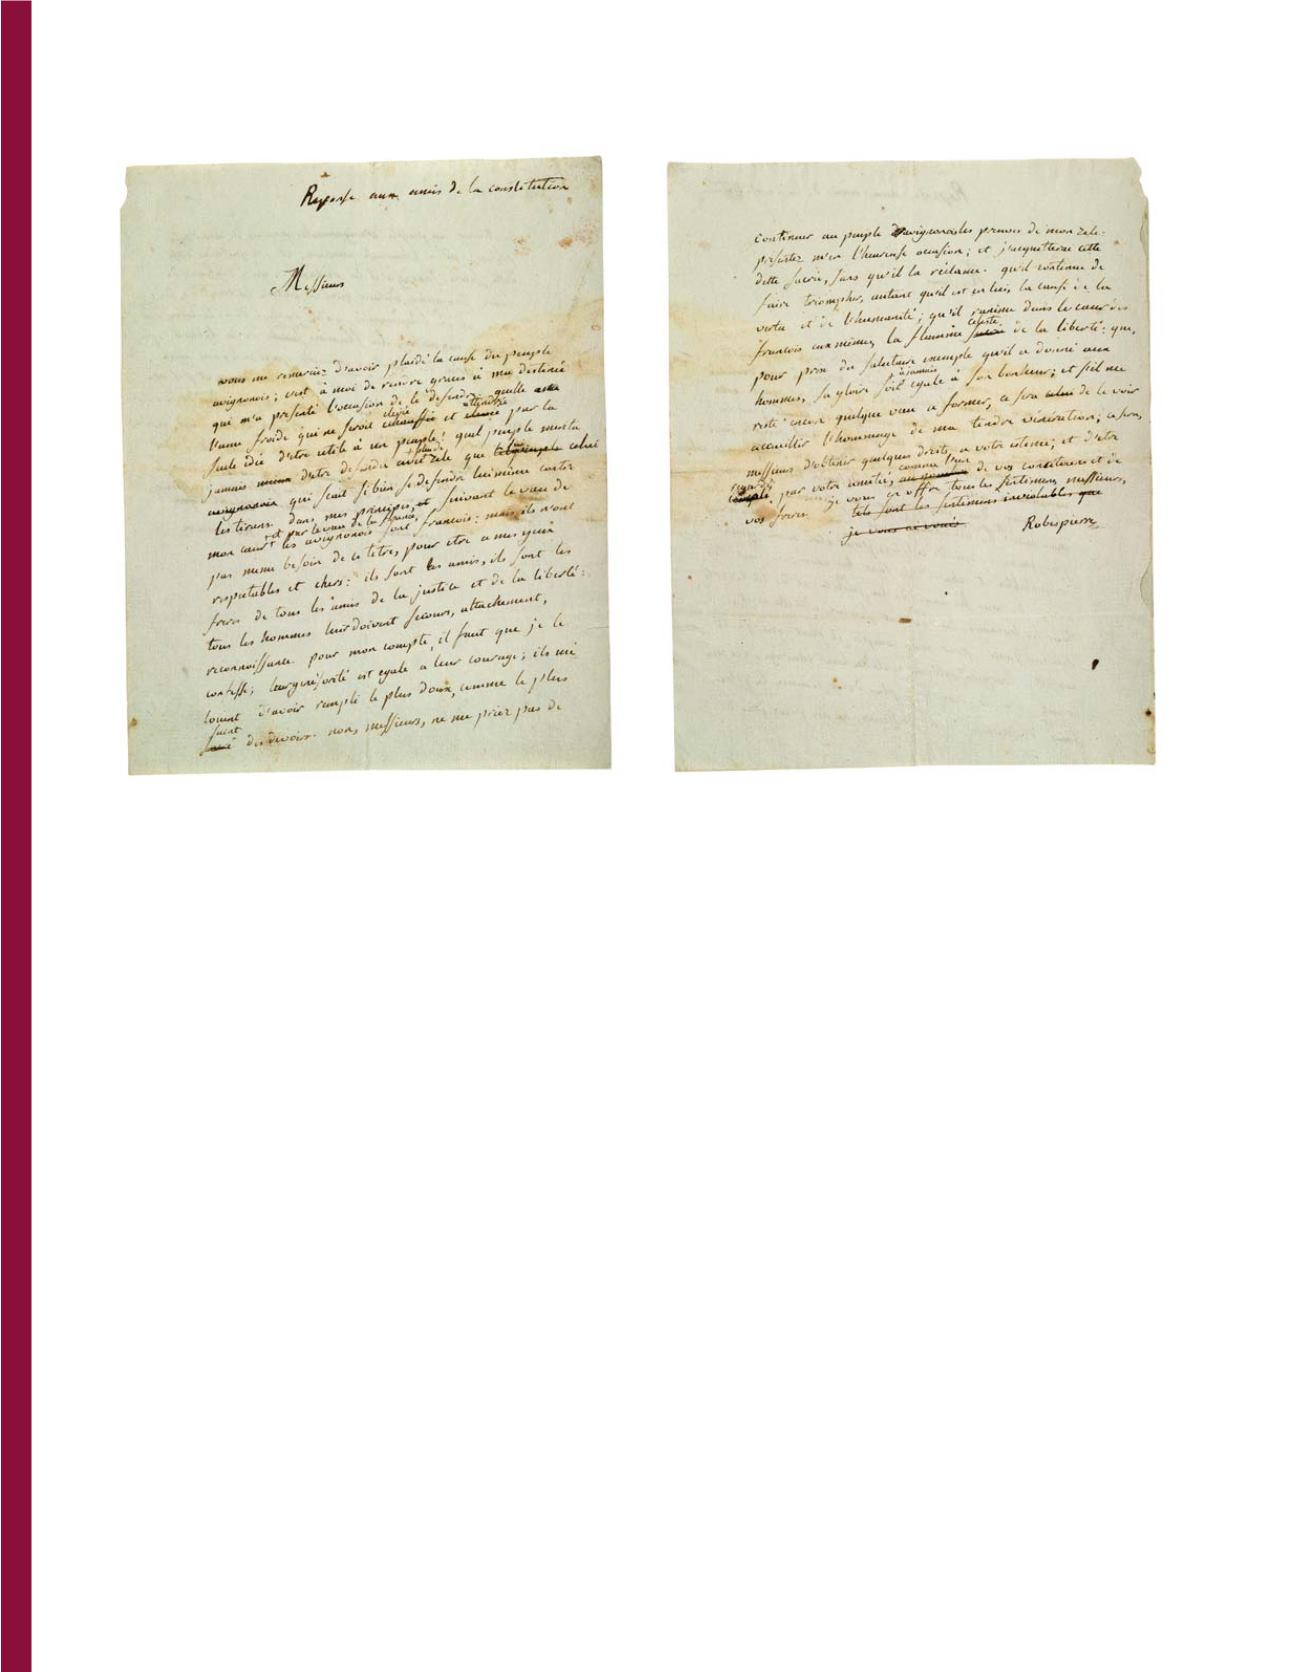 Reponse aux amis de la constitution
Messieurs
vous me remerciez d'avoir plaidé la cause du peuple
avignonois; c'est à moi de rendre graces à ma destinée
qui m'a présenté l'occasion de le defendre. quelle ame
l'ame froide qui ne seroit élevée echauffée et attendrie par la
seule idée d'etre utile à un peuple! quel peuple merita
jamais mieux d'etre defendu avec zele que tel peuple celui
avignonois qui scait si bien se defendre lui même contre
les tirans. dans mes principes, et suivant le voeu de
mon coeur et par le voeu de la france, les avignonois sont francois: mais ils n'ont
pas meme besoin de ce titre, pour etre a mes yeux
respectables et chers: ils sont les amis, ils sont les
freres de tous les amis de la justice et de la liberté:
tous les hommes leur doivent secours, attachement,
reconnoissance. pour mon compte, il faut que je le
confesse; leur générosité est egale a leur courage; ils me
louent d'avoir rempli le plus doux, comme le plus
des devoirs. non, messieurs, ne me priez pas de
continuer au peuple d'avignon les preuves de mon zele.
présentez m'en l'heureuse occasion; et j'acquitterai cette
dette sacrée, sans qu'il la réclame. qu'il continue de
faire triompher, autant qu'il est en lui, la cause de la
vertu et de l'humanité; qu'il ranime dans le coeur des
francois eux mêmes la flamme céleste de la liberté: que,
pour prix du salutaire exemple qu'il a donné aux
hommes, sa gloire soit à jamais egale à son bonheur; et s'il me
reste encore quelque voeu a former, ce sera celui de le voir
accueillir l'hommage de ma tendre vénération; ce sera,
messieurs d'obtenir quelques droits a votre estime; et d'etre
regardé compté, par votre comité, au nombre comme l'un de vos concitoiens et de
vos freres. je vous en offre tous les sentimens, messieurs,
tels sont les sentimens inviolables que
je vous ai voués
Robespierre